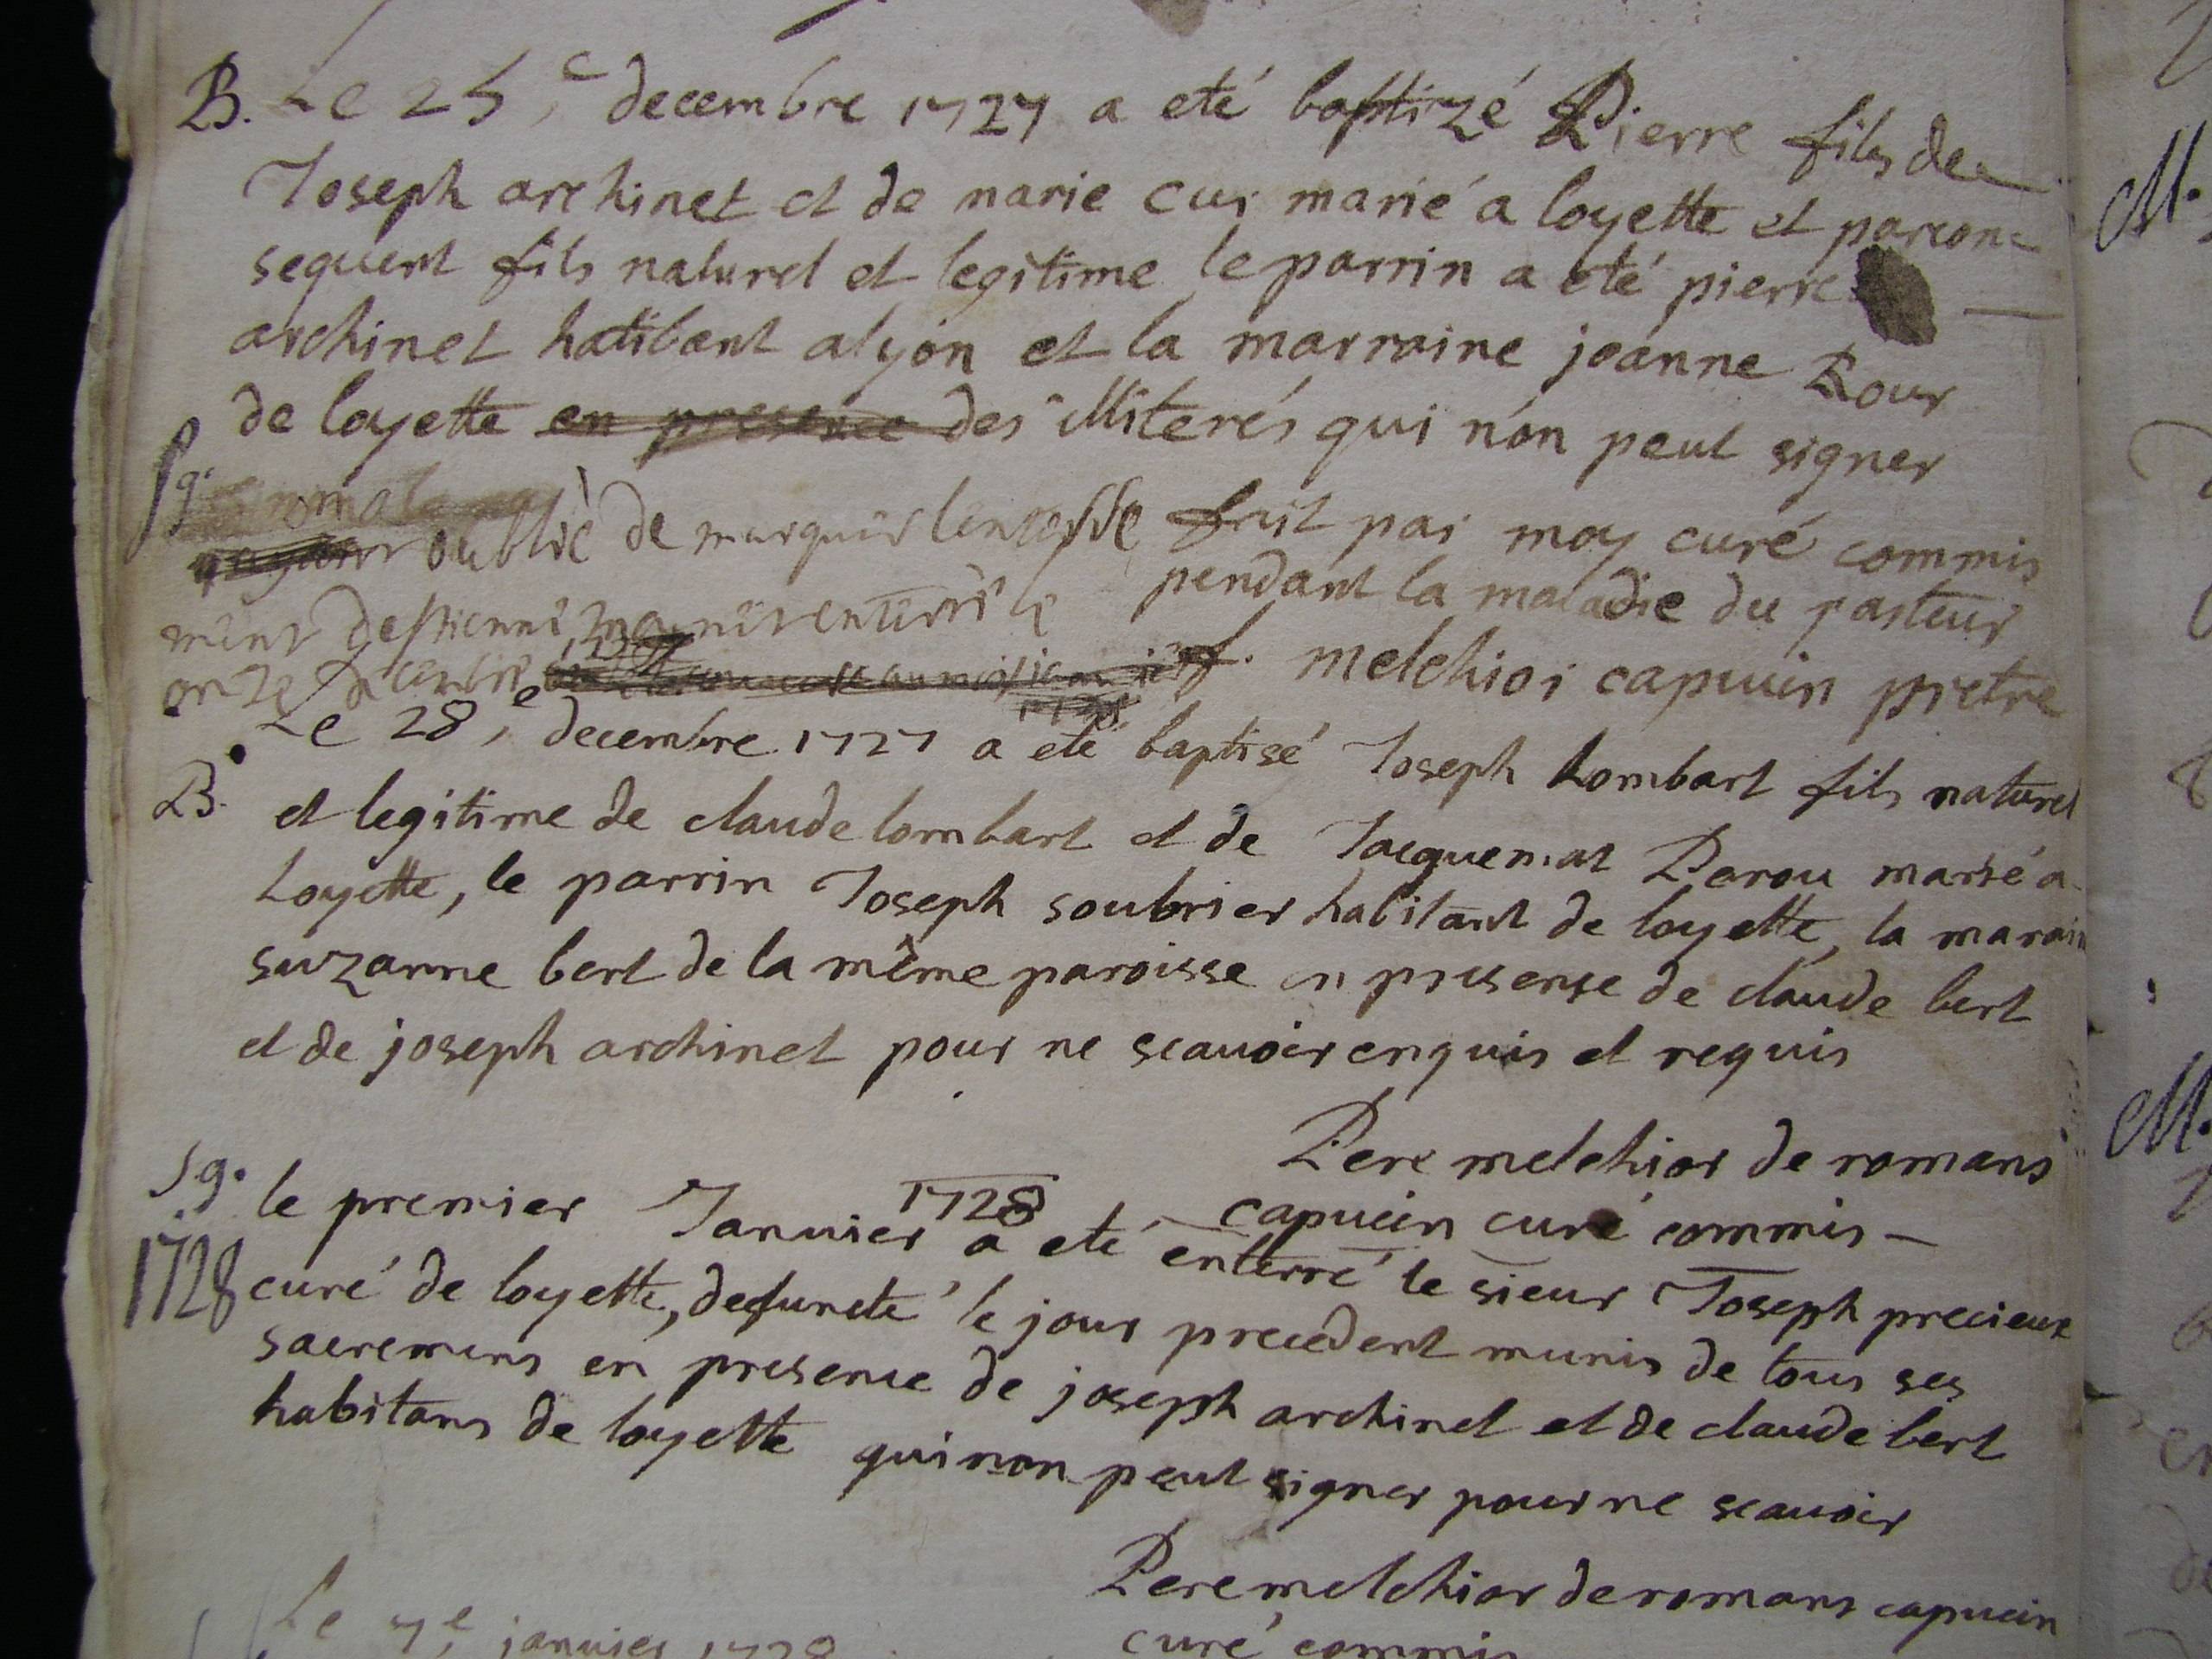 B. Le 25,e decembre 1727 a eté baptizé Pierre fils de
Joseph archinet et de marie cui marié a loyette et parcon=
sequent fils naturel et legitime le parrin a eté pierre
archinet habitant a lyon et la marraine jeanne Rour
de loyette en presence des illiterés qui n'on peut signer
Sg.
oublié de marquer lenterre fait par moy curé commis
ment destienne enterré le pendant la maladie du pasteur
onze decembre f. melchior capucin pretre
Le 28,e decembre 1727 a eté baptisé Joseph Lombart fils naturel
B. et legitime de claude lombart et de Jacquemat Perou marié a
Loyette, le parrin Joseph soubrier habitant de loyette, la marain
suzanne bert de la même paroisse en presense de claude bert
et de joseph archinet pour ne scauoir enquis et requis
Pere melchior de romans
capucin curé commis –
Sg. le premier Januier 1728 a eté enterré le sieur Joseph precieux
1728 curé de loyette, defuncté le jour precedent munis de tous ses
sacremens en presence de joseph archinet et de claude bert
habitans de loyette qui non peut signer pour ne scauoir
Pere melchior de romans capucin
curé commis
Le 7,e januier 1728
M.
M.